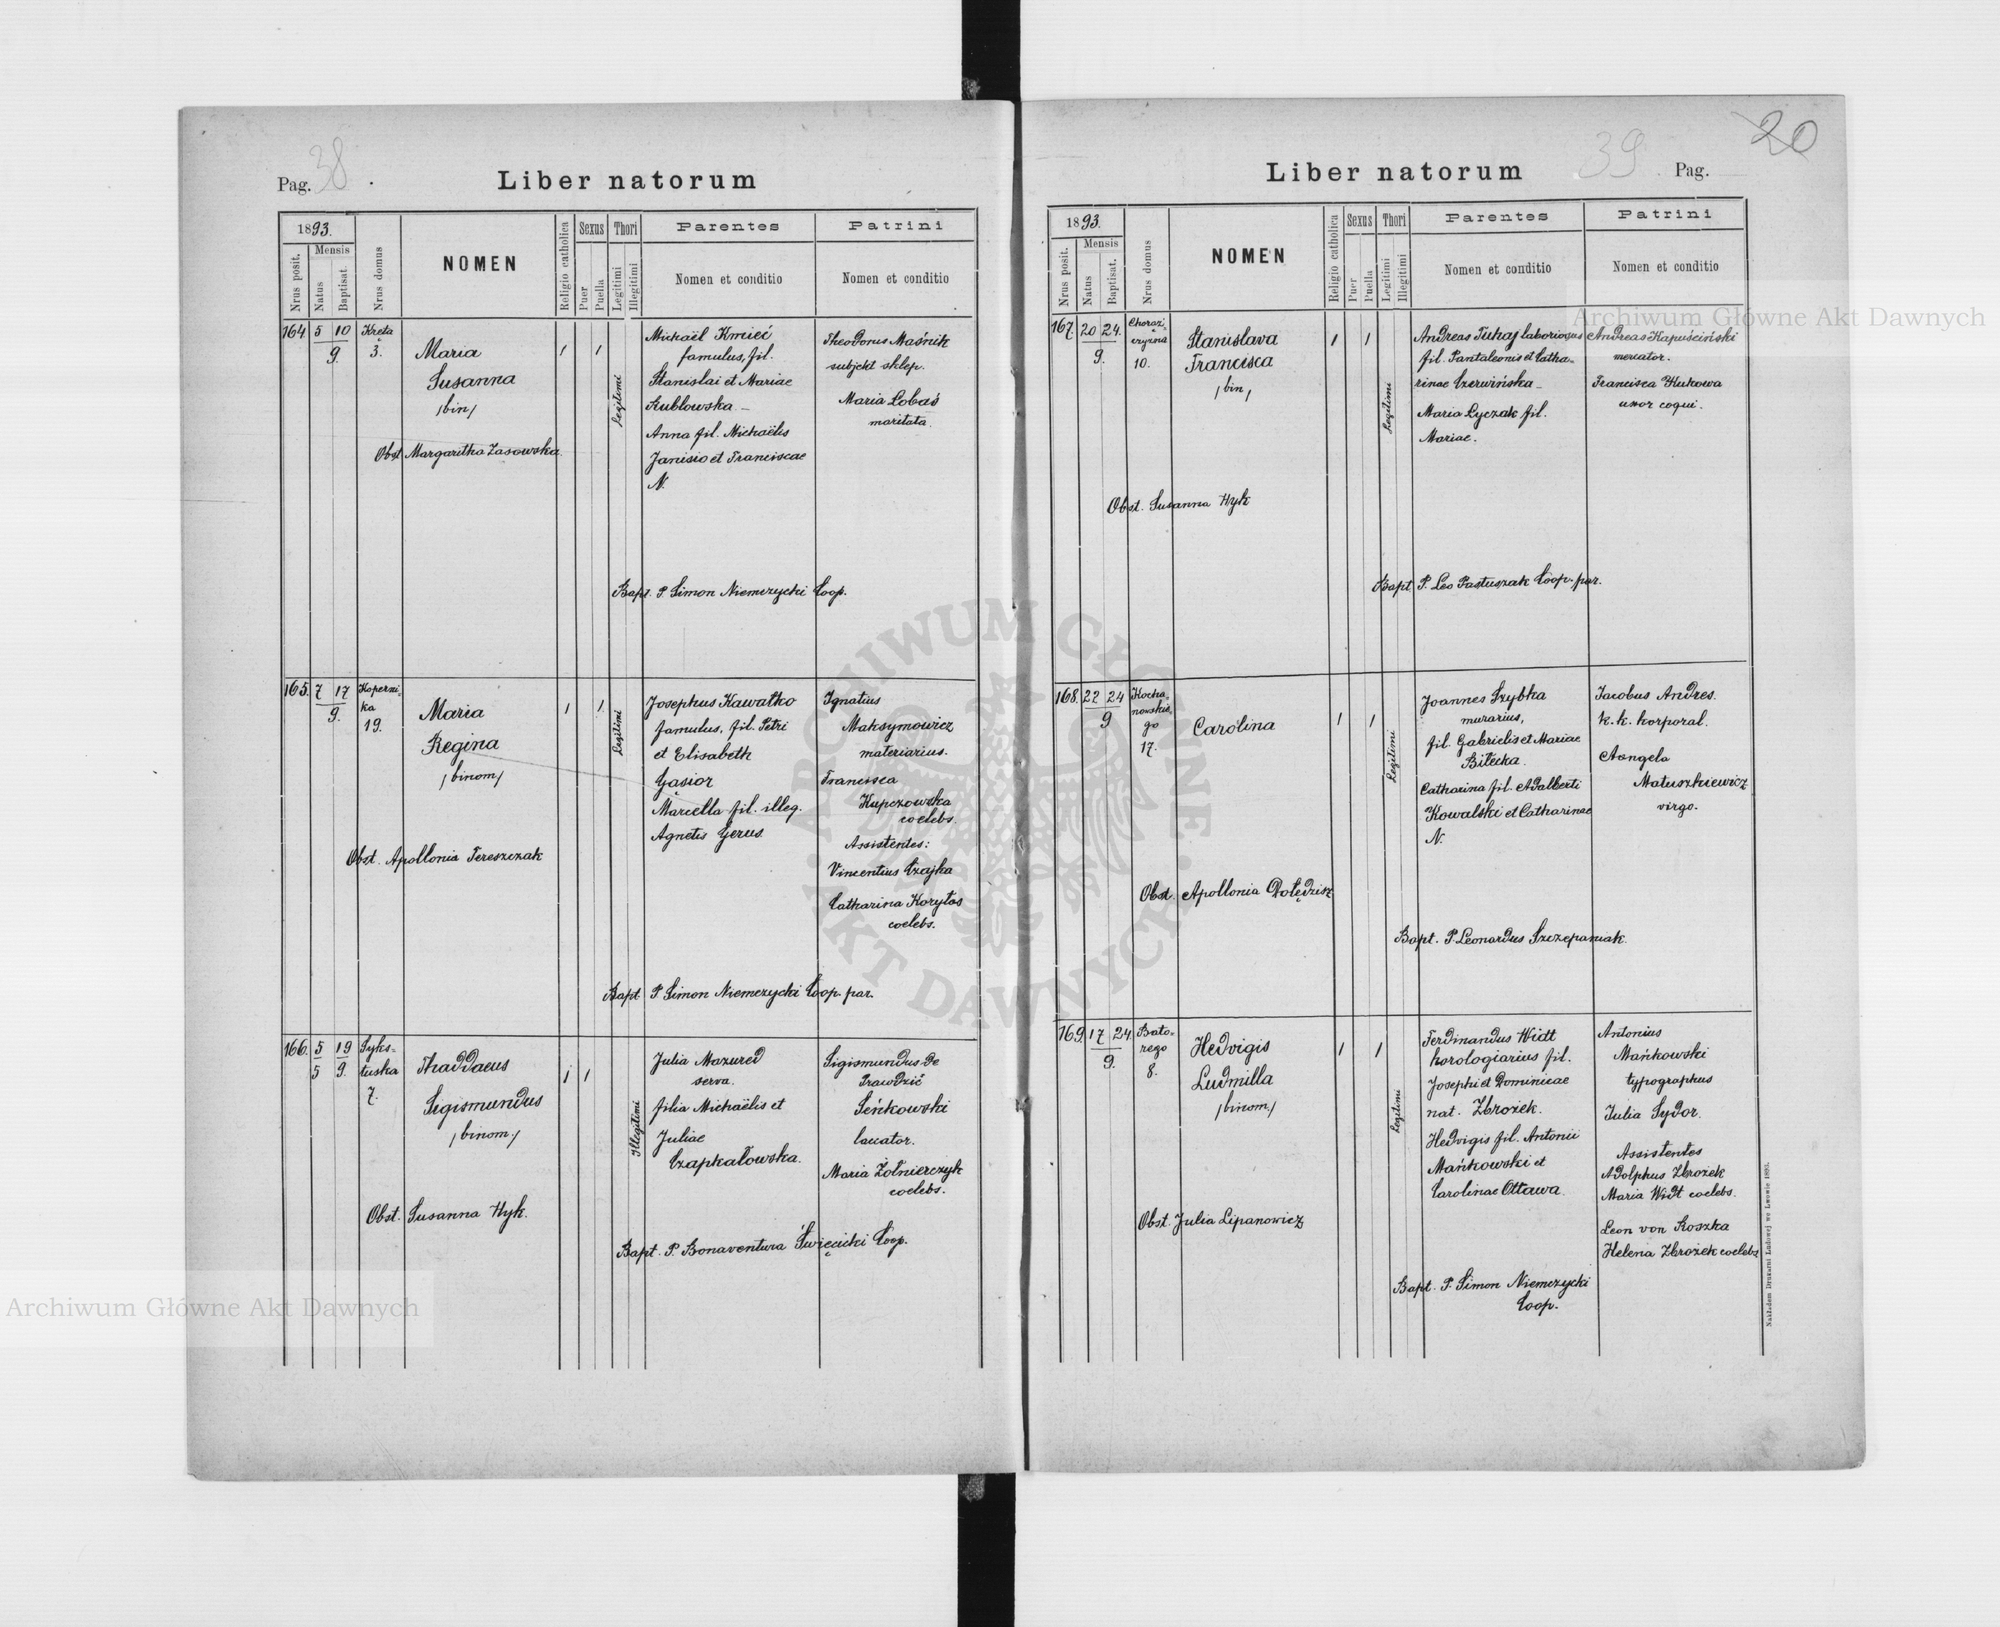 Pag. 38
Liber natorum
1893.
Nrus posit.
Mensis
Natus
Baptisat.
Nrus domus
NOMEN
Religio catholica
Sexus
Puer
Puella
Thori
Legitimi
Illegitimi
Parentes
Nomen et conditio
Patrini
Nomen et conditio
164 5 10
9.
Kręta
3.
Maria
Susanna
/bin/
1 1
Legitimi
Michaël Kmieć
famulus, fil.
Stanislai et Mariae
Kublowska –
Anna fil. Michaëlis
Janisio et Franciscae
N.
Theodorus Maśnik
subjekt sklep.
Maria Lobaś
maritata.
Obst. Margaritha Zasowska.
Bapt. P. Simon Niemczycki Coop.
165. 7 17
9.
Koperni-
ka
19.
Maria
Regina
/binom/
1 1
Legitimi
Josephus Kawałko
famulus, fil. Petri
et Elisabeth
Gąsior
Marcella fil. illeg.
Agnetis Gerus.
Ignatius
Maksymowicz
materiarius.
Francisca
Kupczowska
coelebs.
Assistentes:
Vincentius Czajka
Catharina Korytas
coelebs.
Obst. Apollonia Tereszczak
Bapt P. Simon Niemczycki Coop. par.
166. 5 19
5 9.
Syks-
tuska
7.
Thaddaeus
Sigismundus
/binom./
1 1
Illegitimi
Julia Mazured
serva.
filia Michaëlis et
Juliae
Czapkałowska.
Sigismundus De
Prawdzić
Seńkowski
laccator.
Maria Żołnierczyk
coelebs.
Obst. Susanna Hyk.
Bapt. P. Bonaventura Święcicki Coop.
Liber natorum
39
Pag.
20
1893.
Nrus posit.
Mensis
Natus
Baptisat.
Nrus domus
NOMEN
Religio catholica
Sexus
Puer
Puella
Thori
Legitimi
Illegitimi
Parentes
Nomen et conditio
Patrini
Nomen et conditio
167. 20 24.
9.
Chorąż-
czyzna
10.
Stanislava
Francisca
/bin/
1 1
Legitimi
Andreas Tukaj laboriosus
fil. Pantaleonis et Catha-
rinae Czerwińska –
Maria Lyczak fil.
Mariae.
Andreas Kapuściński
mercator.
Francisca Kukowa
uxor coqui.
Obst. Susanna Hyk
Bapt P. Leo Pastuszak Coop. par.
168. 22 24
9
Kocha-
nowskie-
go
17.
Carolina
1 1
Legitimi
Joannes Szybka
murarius,
fil. Gabrielis et Mariae
Bilecka.
Catharina fil. Adalberti
Kowalski et Catharinae
N.
Jacobus Andres.
k. k. korporal.
Aangela
Matuszkiewicz
virgo.
Obst. Apollonia Dołędzisz
Bapt. P. Leonardus Szczepaniak.
169. 17 24.
9.
Bato-
rego
8.
Hedvigis
Ludmilla
/binom./
1 1
Legitimi
Ferdinandus Widt
horologiarius fil.
Josephi et Dominicae
nat. Zbrożek.
Hedvigis fil. Antonii
Mańkowski et
Carolinae Ottawa.
Antonius
Mańkowski
typographus
Julia Sydor.
Assistentes
Adolphus Zbrożek
Maria Widt coelebs.
Leon von Roszka
Helena Zbrożek coelebs
Obst. Julia Lipanowicz
Bapt. P. Simon Niemczycki
Coop.
Nakładem Drukarni Ludowej we Lwowie 1893.
Archiwum Główne Akt Dawnych
Archiwum Główne Akt Dawnych
ARCHIWUM GŁÓWNE
AKT DAWNYCH